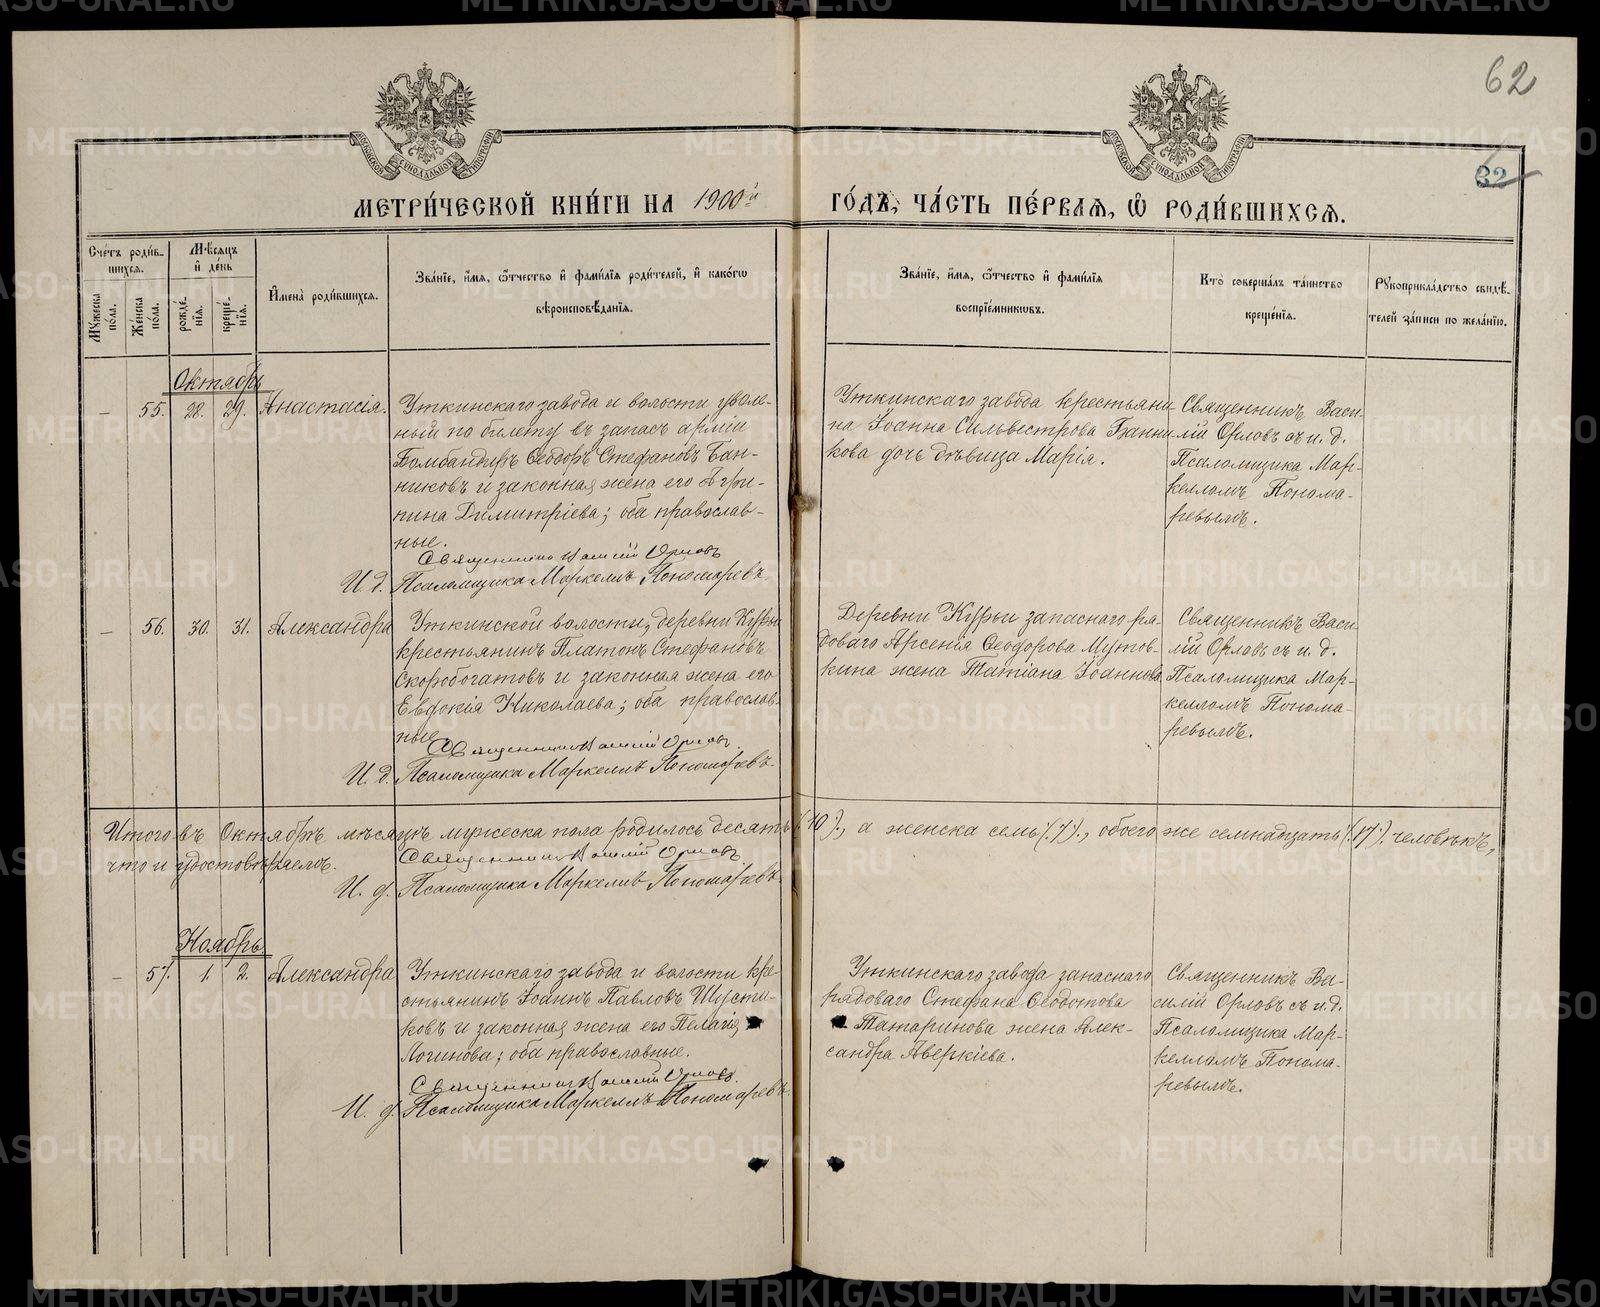 62
32
МОСКОВСКОЙ СѴНОДАЛЬНОЙ ТИПОГРАФІИ
МОСКОВСКОЙ СѴНОДАЛЬНОЙ ТИПОГРАФІИ
МЕТРИ́ЧЕСКОЙ КНИ́ГИ НА 1900й ГО́ДЪ, ЧА́СТЬ ПЕ́РВАѦ, Ѡ РОДИ́ВШИХСѦ.
Сче́тъ роди́в-
шихсѧ.
Мѣ́сѧцъ
и҆ де́нь
Мꙋжеска по́ла.
Же́нска по́ла.
рожде́-
нїѧ.
креще́-
нїѧ.
И҆мена̀ роди́вшихсѧ.
Зва́нїе, и҆́мѧ, ѻ҆́тчество и҆ фами́лїѧ роди́телей, и҆ како́гѡ
вѣроисповѣ́данїѧ.
Зва́нїе, и҆́мѧ, ѻ҆́тчество и҆ фами́лїѧ
воспрїе́мникѡвъ.
Кто̀ соверша́лъ та́инство
креще́нїѧ.
Рꙋкоприкла́дство свидѣ́-
телей за́писи по жела́нїю.
Октябрь
— 55. 28. 29. Анастасія.
Уткинскаго завода и волости уволе-
ный по билету въ запасъ арміи
Бомбандиръ Ѳеодоръ Стефановъ Бан-
никовъ и законная жена его Агри-
пина Димитріева; оба православ-
ные.
Священникъ Василій Орловъ
И. д. Псаломщика Маркеллъ Пономаревъ.
Уткинскаго завода крестьяни-
на Іоанна Сильвестрова Банни-
кова дочь дѣвица Марія.
Священникъ Васи-
лій Орловъ съ и. д.
Псаломщика Мар-
келломъ Понома-
ревымъ.
— 56. 30. 31. Александра
Уткинской волости, деревни Курьи
крестьянинъ Платонъ Стефановъ
Скоробогатовъ и законная жена его
Евдокія Николаева; оба православ-
ные.
Священникъ Василій Орловъ.
И. д. Псаломщика Маркеллъ Пономаревъ.
Деревни Курьи запаснаго ря-
доваго Арсенія Ѳеодорова Мутов-
кина жена Татіана Іоаннова
Священникъ Васи-
лій Орловъ съ и. д.
Псаломщика Мар-
келломъ Понома-
ревымъ.
Итого въ Октябрѣ мѣсяцѣ мужеска пола родилось десять (10)., а женска семь (7)., обоего же семнадцать (17) человѣкъ,
что и удостовѣряемъ.
Священникъ Василій Орловъ
И. д. Псаломщика Маркеллъ Пономаревъ.
Ноябрь.
— 57. 1. 2. Александра
Уткинскаго завода и волости кре-
стьянинъ Іоаннъ Павловъ Шусти-
ковъ и законная жена его Пелагія
Логинова; оба православные.
Священникъ Василій Орловъ.
И. д. Псаломщика Маркеллъ Пономаревъ.
Уткинскаго завода запаснаго
рядоваго Стефана Ѳеодотова
Татаринова жена Алек-
сандра Аверкіева.
Священникъ Ва-
силій Орловъ съ и. д.
Псаломщика Мар-
келломъ Понома-
ревымъ.
METRIKI.GASO-URAL.RU